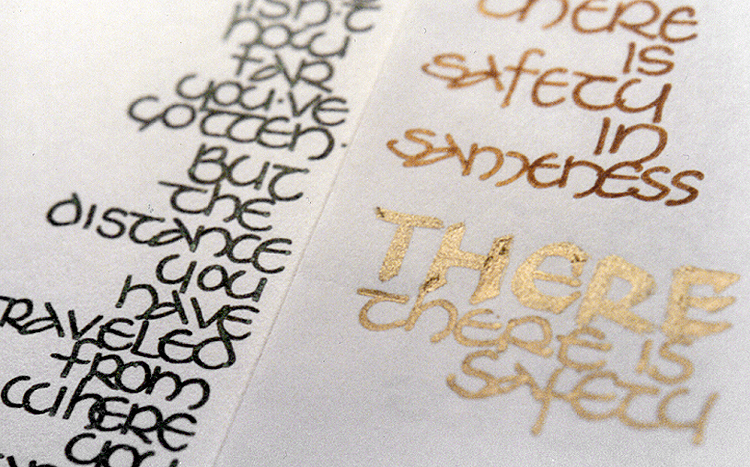 isn't
how
far
you've
gotten.
But
the
distance
you
have
traveled
from
where
you
there
is
safety
in
sameness
THERE
there is
safety